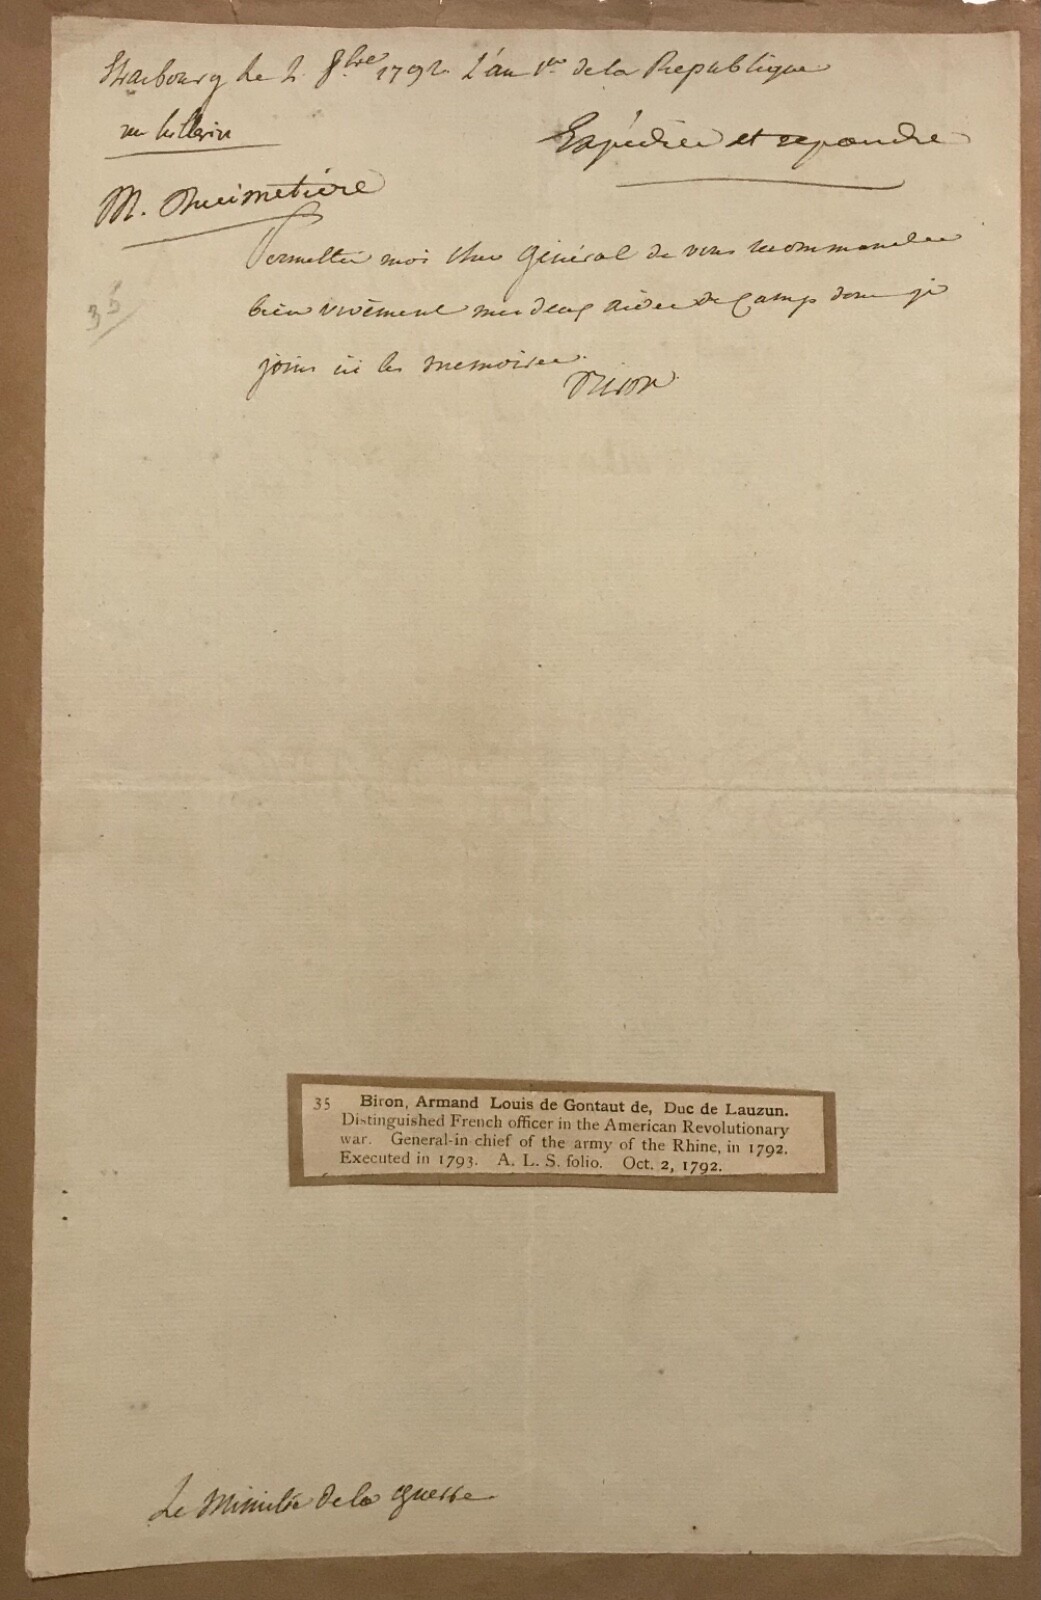 Strasbourg le 2. 8.bre 1792. L'an 1er de la Republique
Expédier et repondre
M.
35
Permettes moi cher Général de vous recommander
bien vivement mes deux aides de Camp dont je
joins ici les memoires.
Biron
35 Biron, Armand Louis de Gontaut de, Duc de Lauzun.
Distinguished French officer in the American Revolutionary
war. General-in chief of the army of the Rhine, in 1792.
Executed in 1793. A. L. S. folio. Oct. 2, 1792.
Le Ministre de la guerre